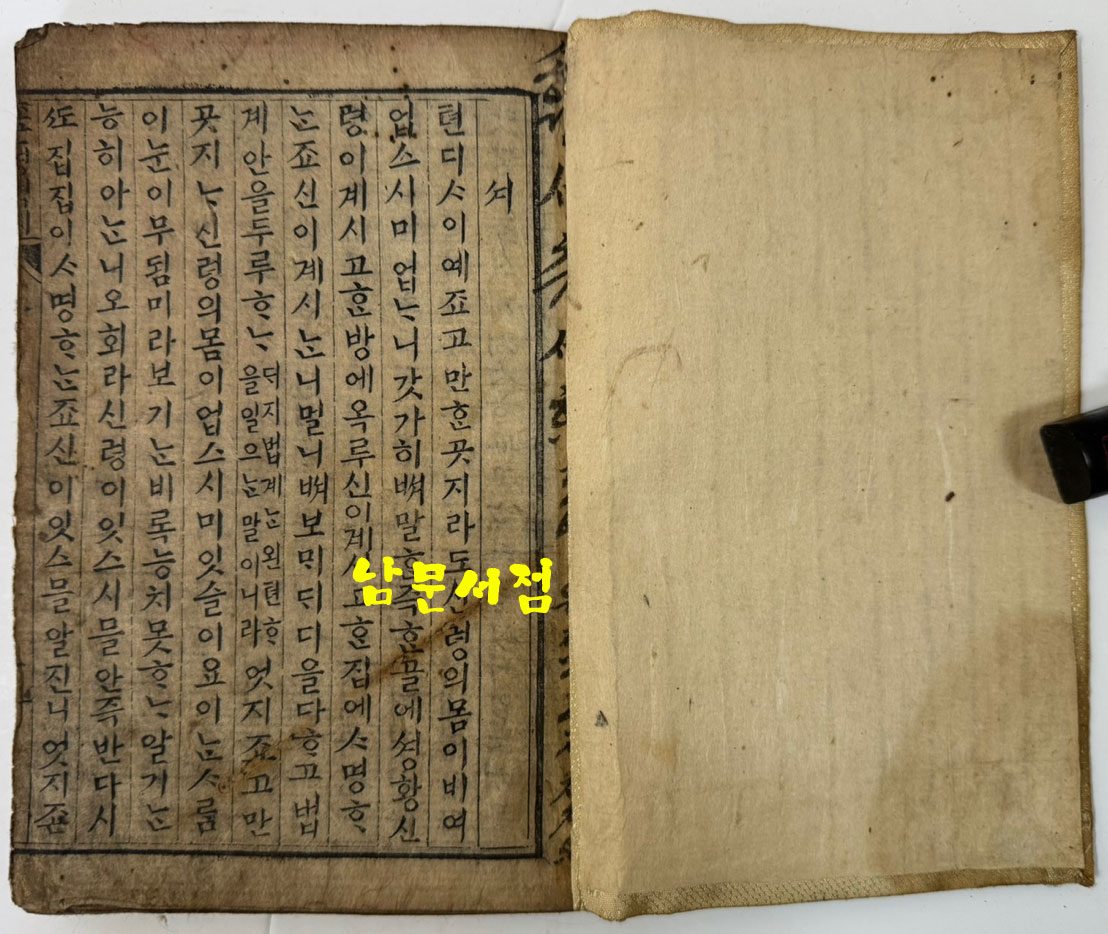 셔
텬디ᄉᆞ이예죠고만ᄒᆞᆫ곳지라도신령의몸이비여
업스시미업ᄂᆞ니갓가히ᄡᅧ말ᄒᆞᆫ즉ᄒᆞᆫ믈에셩황신
령이계시고ᄒᆞᆫ방에옥루신이게시고ᄒᆞᆫ집에ᄉᆞ명ᄒᆞ
ᄂᆞᆫ죠신이계시ᄂᆞ니멀니ᄡᅧ보ᄆᆡ텬디을다ᄒᆞ고법
계안을두루ᄒᆞᄂᆞ
덕지법계ᄂᆞᆫ왼텬하
을일으ᄂᆞᆫ말이니라
엇지죠고만
곳지ᄂᆞ신령의몸이업스시미잇슬이요이ᄂᆞᆫᄉᆞᄅᆞᆷ
이눈이무됨미라보기ᄂᆞᆫ비록능치못ᄒᆞᄂᆞ알기ᄂᆞᆫ
능히아ᄂᆞ니오회라신령이잇스시믈안즉반다시
ᄯᅩ집집이ᄉᆞ명ᄒᆞᄂᆞᆫ죠신이잇스믈알진니엇지죤
남문서점